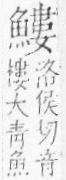 鰻洛侯切音
樓大青魚